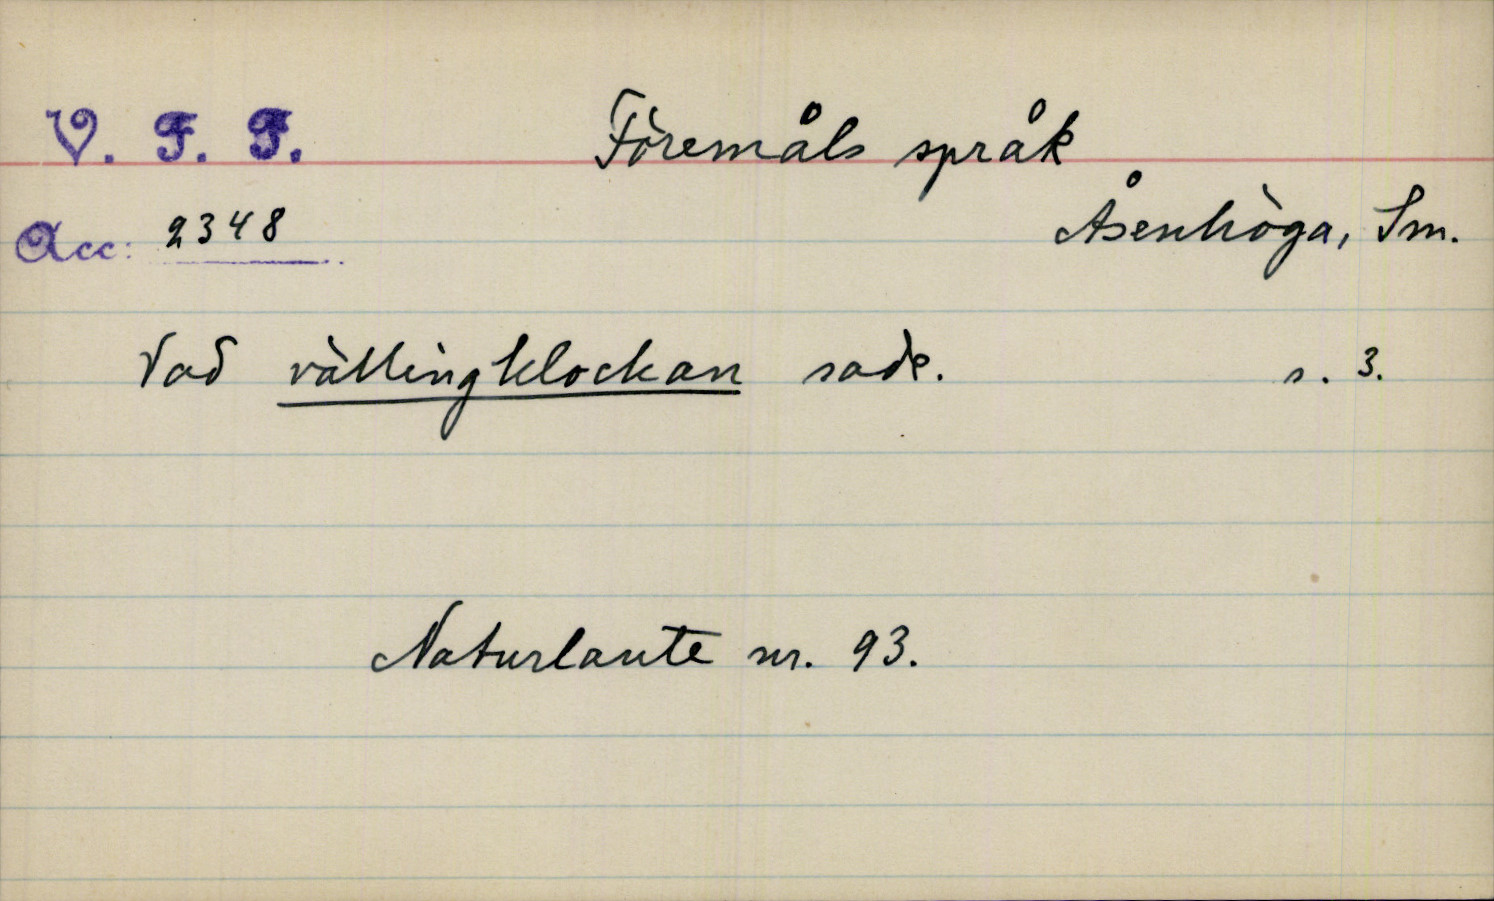 V. F. F. Föremåls språk
Acc: 2348 Åsenhöga, Sm.
Vad vällingklockan sade. s. 3.
Naturlaute nr. 93.